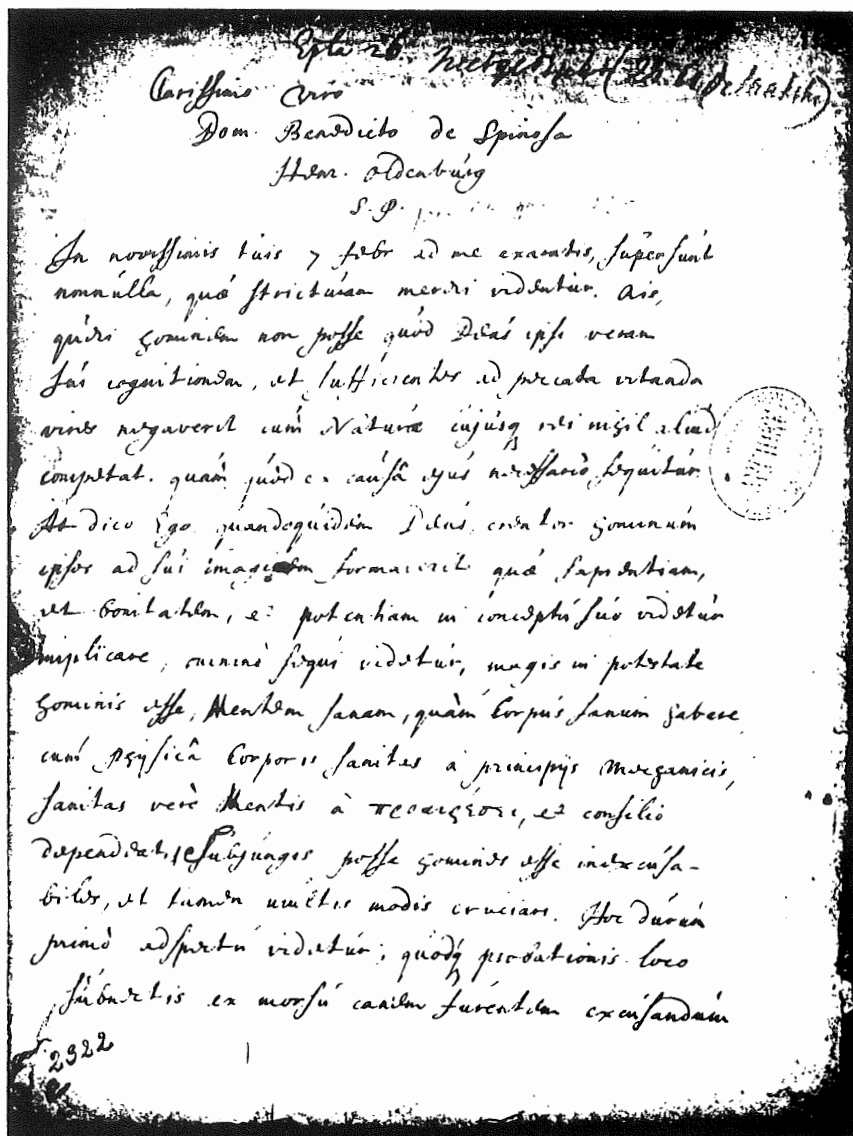 Epla 26
Clarissimo Viro
Dom. Benedicto de Spinosa
Henr. Oldenbúrg
S. P.
In novissimis túis 7 febr ad me exaratis, súpersúnt
nonnúlla, quæ strictúram mereri videntúr. Ais,
quæri hominem non posse quòd Deús ipsi veram
súi cognitionem, et sufficientes ad peccata vitanda
vires negaverit cúm Natúræ cújúsq rei nihil aliúd
competat. quam qúod ex caúsâ ejús necessariò seqúitúr
At dico Ego quandoqúidem Deús creator hominúm
ipsos ad súi imaginem formaverit quæ sapientiam,
et bonitatem, et potentiam in conceptú súo videtúr
implicare, omninò seqúi videtúr, magis in potestate
hominis esse, Mentem sanam, quàm Corpús sanúm habere
cúm Physicâ Corporis sanitas à principijs Mechanicis,
sanitas verò Mentis à προαιρέσει, et consilio
dependeat, Súbjúngis posse homines esse inexcúsa-
biles, et tamen múltis modis crúciari. Hoc dúrúm
primò adspectú videtúr; quodq probationis loco
súbnectis ex morsú canem fúrentem excúsandúm
2922